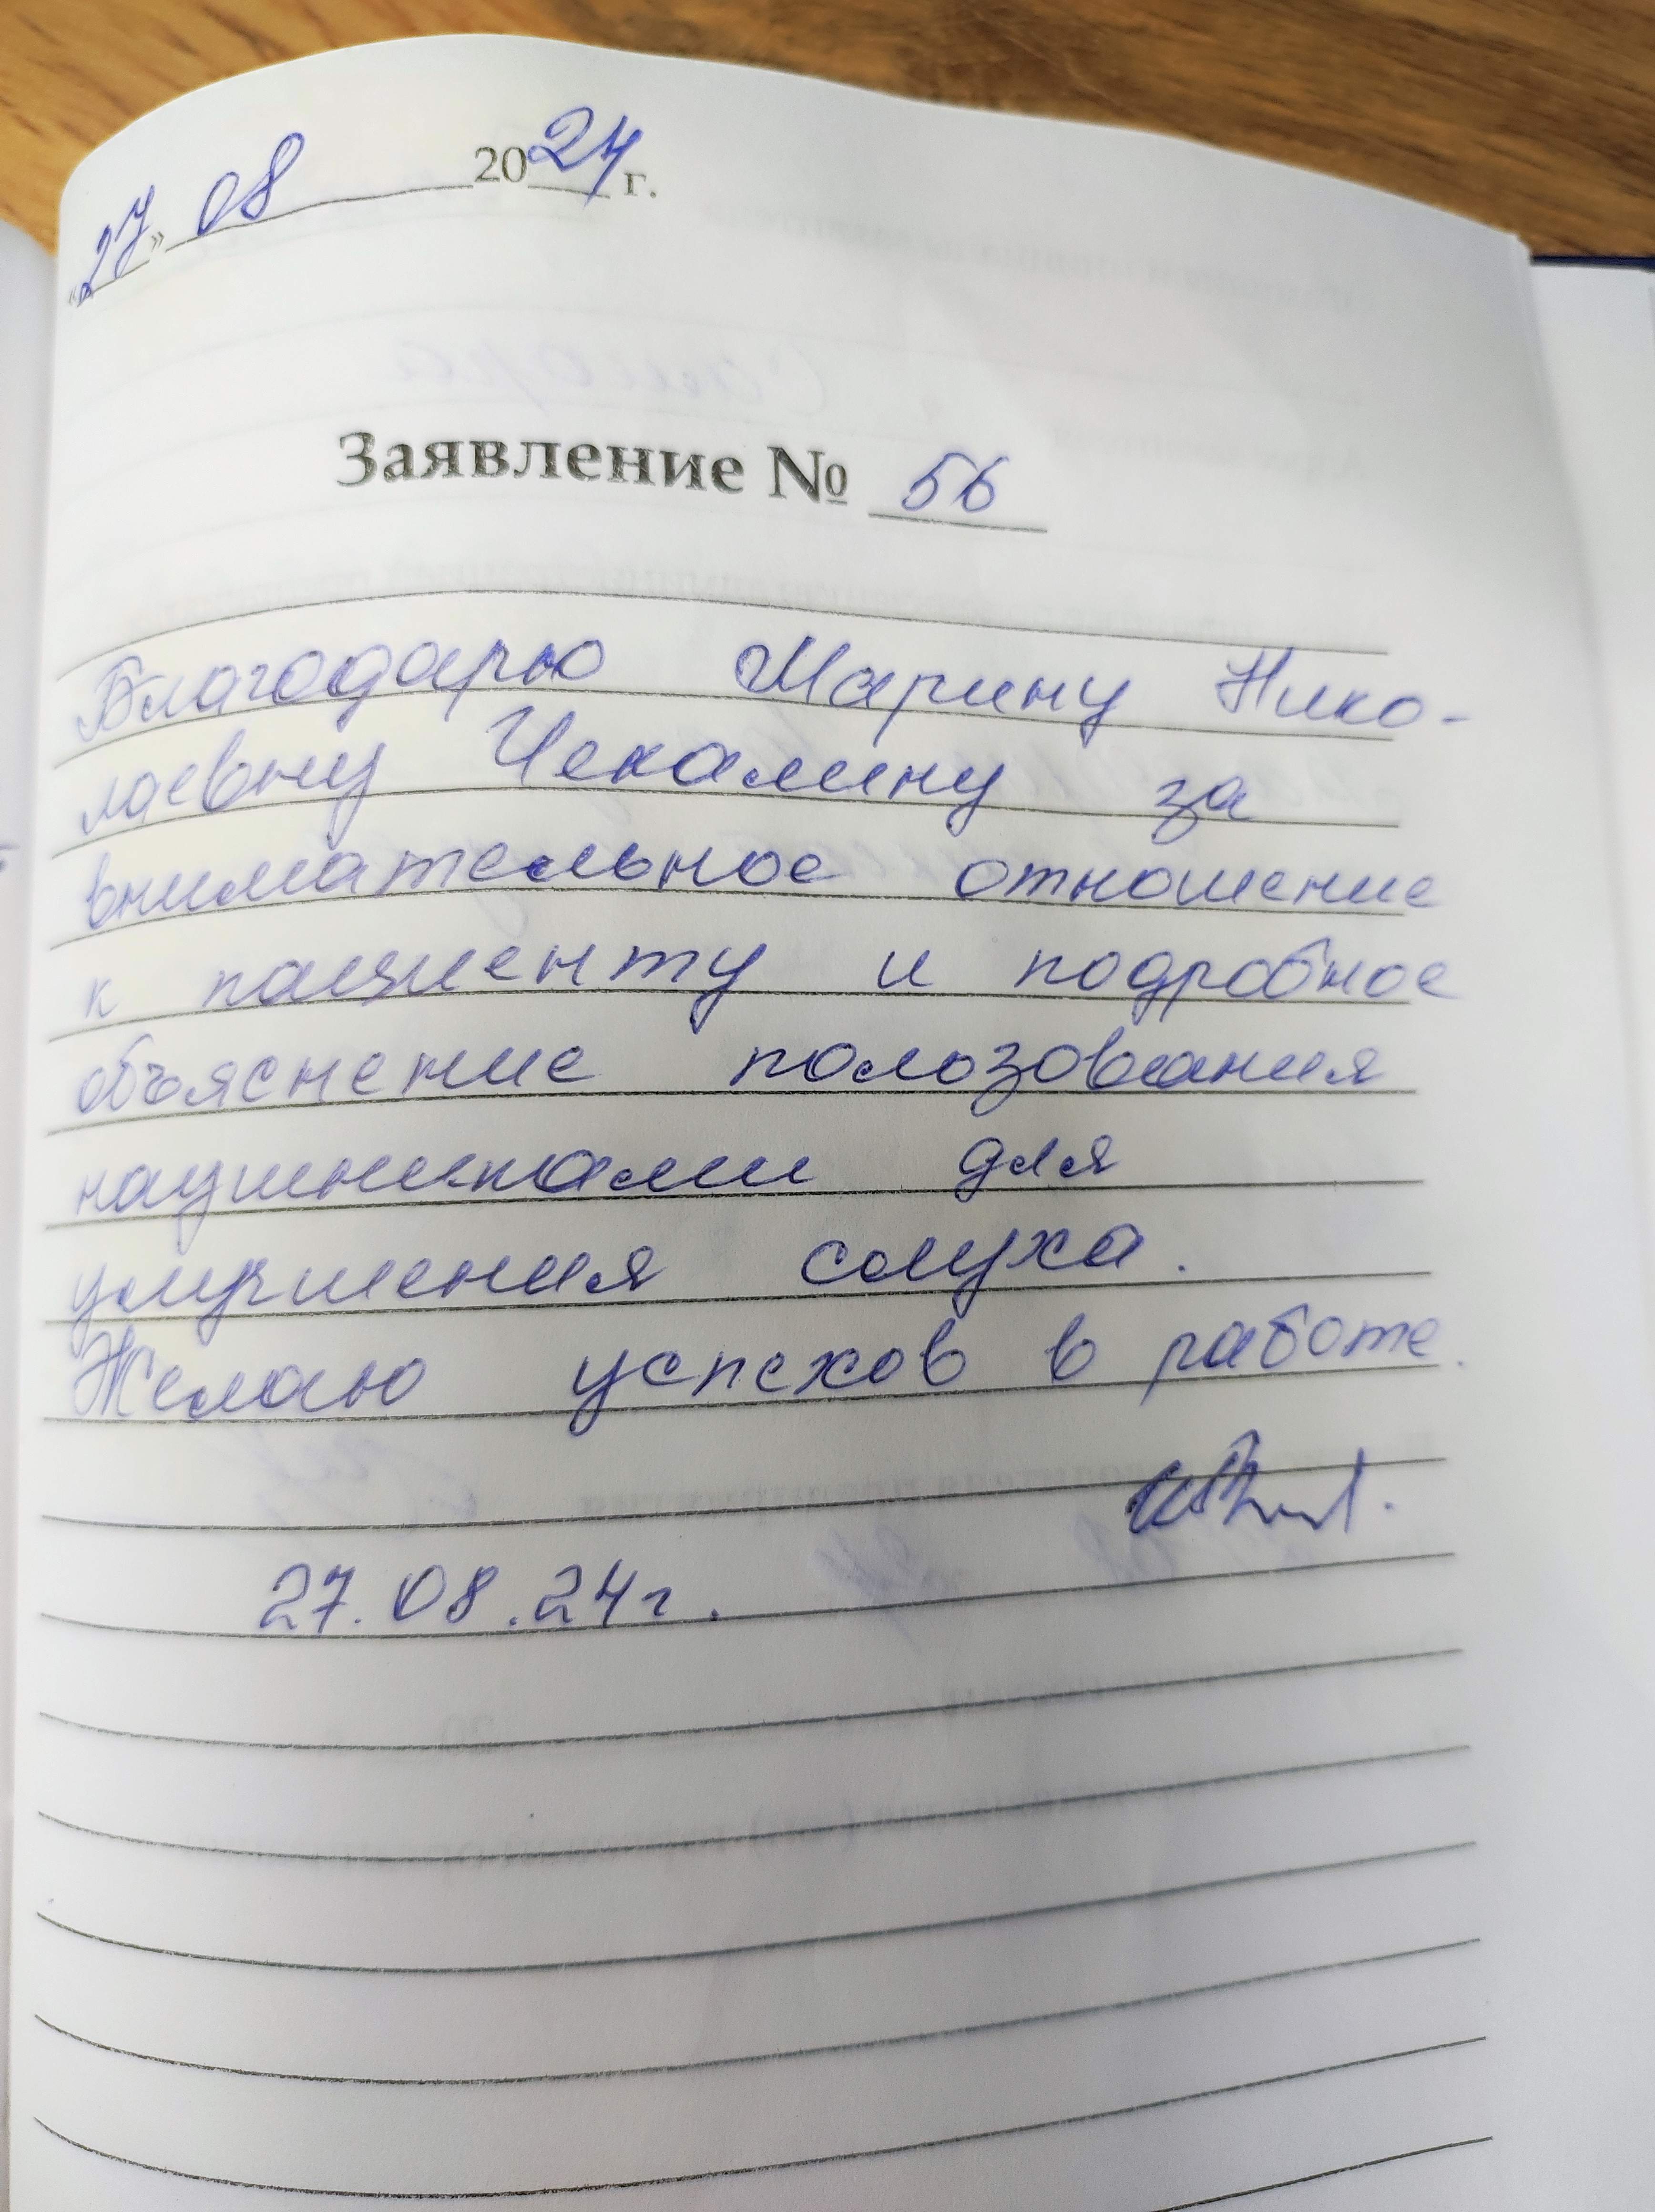 «27» 08 2024 г.
Заявление № 56
Благодарю Марину Нико-
лаевну Чекалину за
внимательное отношение
к пациенту и подробное
объяснение пользования
наушниками для
улучшения слуха.
Желаю успехов в работе.
27.08.24г.